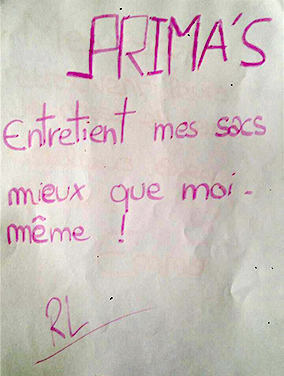 PRIMA'S
Entretient mes sacs
mieux que moi-
même !
RL